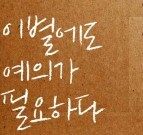 이별에도
예의가
필요하다